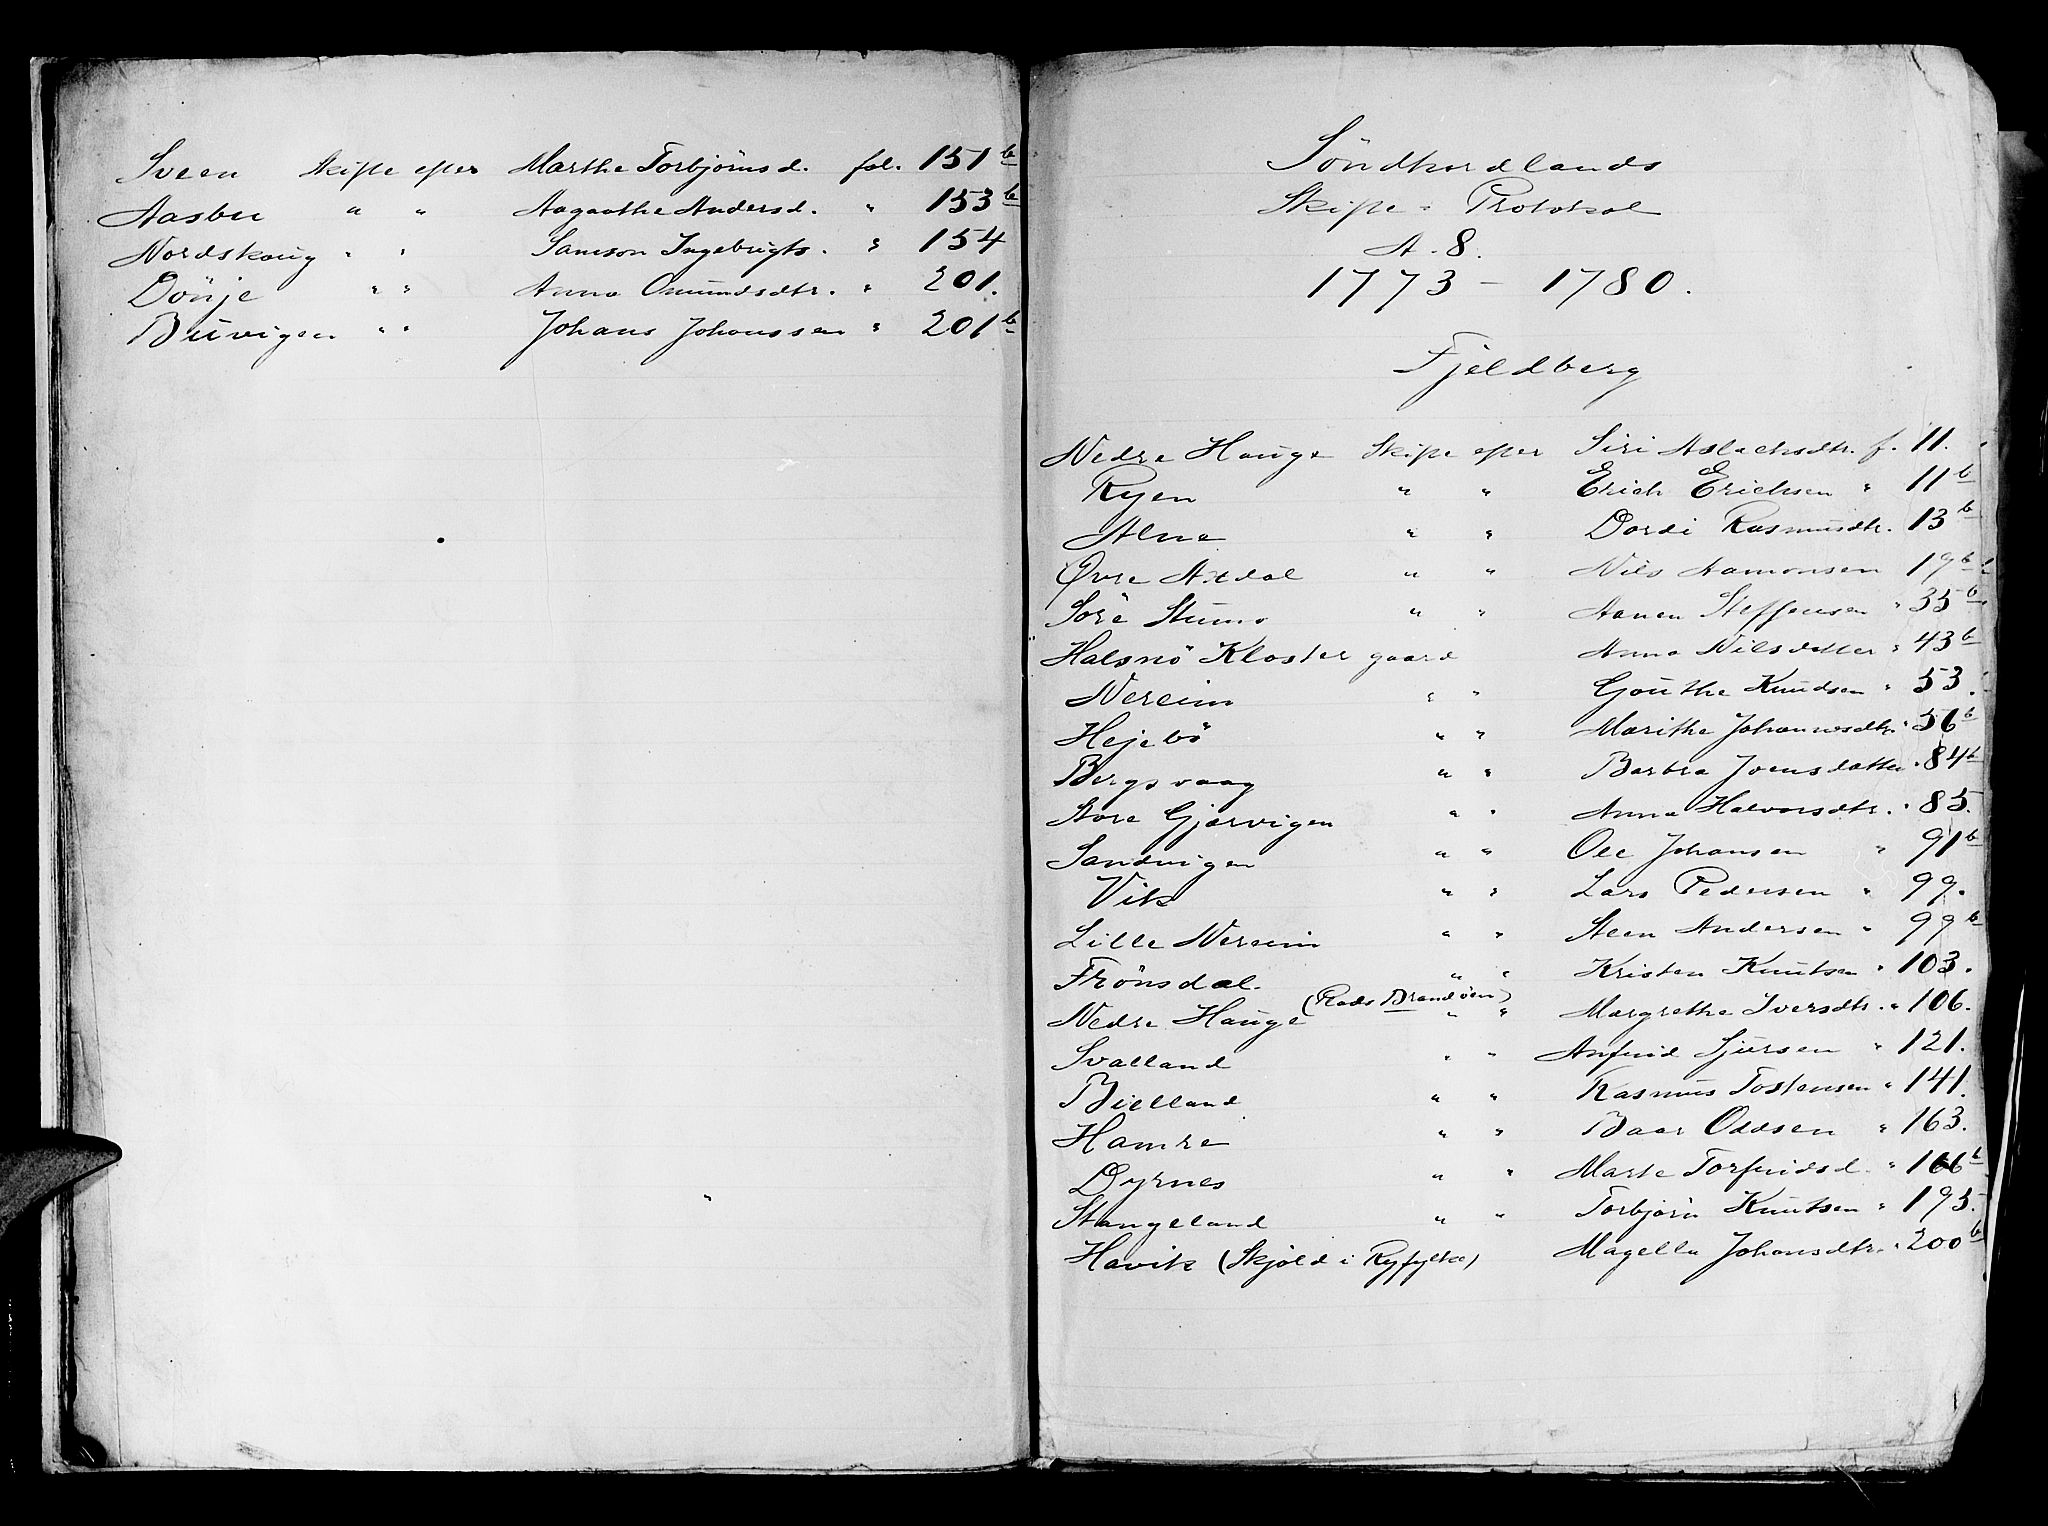 Sveen Skifte efter Marthe Torbjörnsd. fol. 151 b
Aasbu " " Aagaathe Andersd. " 153 b
Nordskoug " " Samson Ingebrigts. " 154
Dönje " " Anna Omundsdtr. " 201.
Buvigen " " Johans Johanssen " 201 b
Söndhordlands
Skifte - Protokol
A. 8.
1773 - 1780.
Fjeldberg
Nedre Hauge Skifte efter Siri Aslachsdtr. f. 11.
Ryen " " Erich Erichsen " 11 b
Alne " " Dordi Rasmusdtr. 13 b
Øvre Axdal " " Nils Aamonsen 19 b
Söre Stumo " " Aanen Steffensen " 35 b
Halsnö Kloster gaard Anna Nilsdatter " 43 b
Nereim " " Gouthe Knudsen " 53.
Hejebö " " Marithe Johannesdtr. " 56 b
Bergsvaag " " Barbra Joensdatter " 84 b
Store Gjærvigen " " Anna Halvorsdtr. " 85.
Sandvigen " " Ole Johansen " 91 b
Vik " " Lars Pedersen " 99.
Lille Nereim " " Steen Andersen " 99 b
Frönsdal. " " Kristen Knutsen " 103.
Nedre Hauge (Plads Brandöen) " " Margrethe Iversdtr. " 106.
Svalland " " Anfind Sjursen " 121.
Bielland " " Rasmus Tostensen " 141.
Hamre " " Baar Oddsen " 163.
Dyrnes " " Marte Torfindsd. " 166 b
Stangeland " " Torbjörn Knutsen " 195.
Havik (Skjöld i Ryfylke) Magella Johansdtr. " 200 b